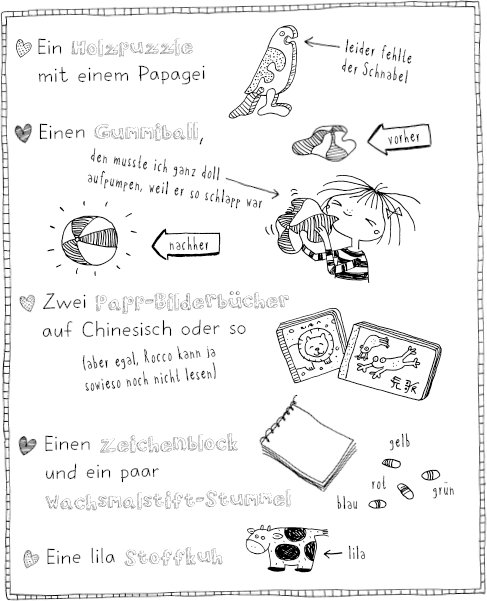 Ein Holzpuzzle
mit einem Papagei
leider fehlte
der Schnabel
Einen Gummiball,
vorher
den musste ich ganz doll
aufpumpen, weil er so schlapp war
nachher
Zwei Papp-Bilderbücher
auf Chinesisch oder so
(aber egal, Rocco kann ja
sowieso noch nicht lesen)
Einen Zeichenblock
und ein paar
Wachsmalstift-Stummel
gelb
rot
grün
blau
Eine lila Stoffkuh
lila